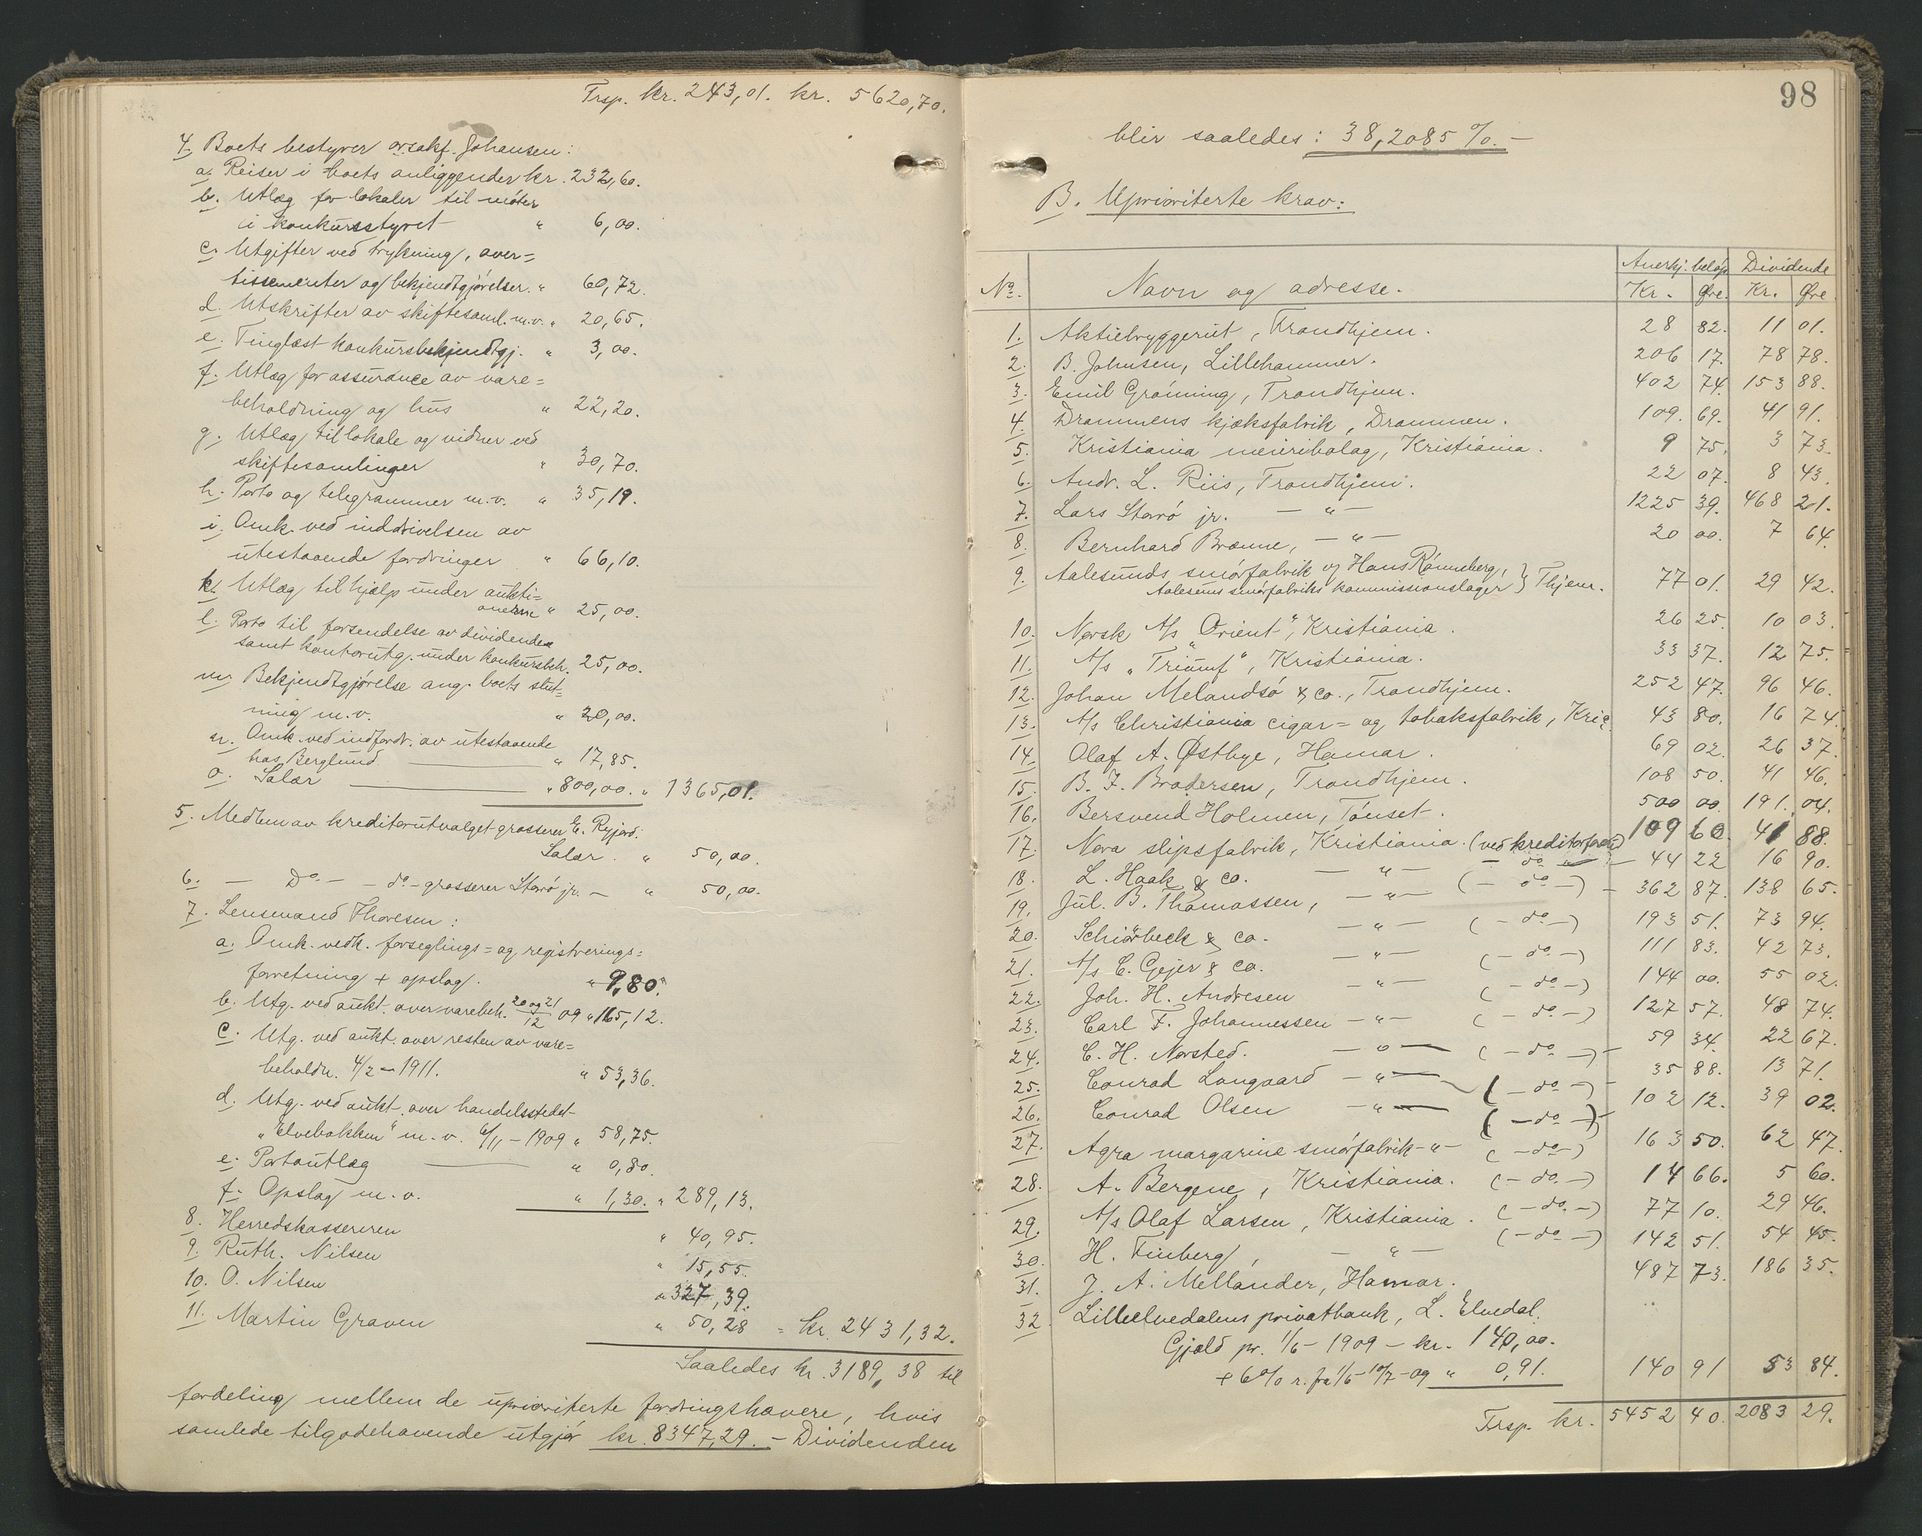 Trsp. kr. 243,01. kr. 5620,70.
4. Boets bestyrer orsakf. Johansen:
a. Reiser i boets anliggender kr. 232,60.
b. Utlæg for lokaler til møter
i konkursstyret " 6,00.
c. Utgifter ved trykning, aver=
tissementer og bekjendtgjørelser. " 60,72.
d. Utskrifter av skiftesaml. m.v. " 20,65.
e. Tinglæst konkursbekjendtgj. " 3,00.
f. Utlæg for assurance av vare=
beholdning og hus " 22,20.
g. Utlæg til lokale og vidner ved
skiftesamlinger " 30,70.
h. Porto og telegrammer m.v. " 35,19.
i. Omk. ved inddrivelsen av
utestaaende fordringer " 66,10.
k. Utlæg til hjælp under aukti=
onerne " 25,00.
l. Porto til forsendelse av dividenden
samt kontorutg. under konkursbeh. 25,00.
m. Bekjendtgjørelse ang. boets slut=
ning m.v. " 20,00.
n. Omk. ved indfordr. av utestaaende
hos Berglund — " 17,85.
o. Salær — " 800,00. " 1365,01.
5. Medlem av kreditorutvalget grosserer E. Ryjord:
Salær. " 50,00.
6. — Do — - do - grosserer Storrø jr. — " 50,00.
7. Lensmand Thoresen:
a. Omk. vedk. forseglings= og registrerings=
forretning + opslag. " 9,80.
b. Utg. ved aukt. over varebeh. 20 og 21/12 09 " 165,12.
c. Utg. ved aukt. over resten av vare=
beholdn. 4/2 - 1911. " 53,36.
d. Utg. ved aukt. over handelsstedet
"Elvebakken" m.v. 6/11 - 1909 " 58,75.
e. Portoutlæg — " 0,80.
f. Opslag m.v. " 1,30. " 289,13.
8. Herredskassereren " 40,95.
9. Ruth. Nilsen " 15,55.
10. O. Nilsen " 327,39.
11. Martin Graven " 50,28 = kr. 2431,32.
Saaledes kr. 3189,38 til
fordeling mellem de uprioriterte fordringshavere, hvis
samlede tilgodehavende utgjør kr. 8347,29. - Dividenden
98
blir saaledes: 38,2085 %. -
B. Uprioriterte krav:
No. Navn og adresse. Anerkj. beløp Dividende
Kr. Øre. Kr. Øre.
1. Aktiebryggeriet, Trondhjem. 28 82. 11 01.
2. B. Johnsen, Lillehammer. 206 17. 78 78.
3. Emil Grønning, Trondhjem. 402 74. 153 88.
4. Drammens kjæksfabrik, Drammen. 109. 69. 41 91.
5. Kristiania meieribolag, Kristiania. 9 75. 3 73.
6. Andr. L. Riis, Trondhjem. 22 07. 8 43.
7. Lars Storrø jr. — " — 1225 39. 468 21.
8. Bernhard Brænne, — " — 20 00. 7 64.
9. Aalesunds smørfabrik v/ Hans Rønneberg, } Thjem. 77 01. 29 42.
Aalesunds smørfabriks kommissionslager
10. Norsk A/s "Orient", Kristiania. 26 25. 10 03.
11. A/s "Triumf", Kristiania. 33 37. 12 75.
12. Johan Melandsø & co., Trondhjem. 252 47. 96 46.
13. A/s Christiania cigar= og tobaksfabrik, Kria. 43 80. 16 74.
14. Olaf A. Østbye, Hamar. 69 02. 26 37.
15. B. F. Brodersen, Trondhjem. 108 50. 41 46.
16. Bersvend Holmen, Tønset. 500 00. 191. 04.
17. Nora slipsfabrik, Kristiania. (ved kreditorforen.) 109 60. 41 88.
18. L. Haak & co. — " — — do — 44 22 16 90.
19. Jul. B. Thomassen, — " — ( — do — ) 362 87. 138 65.
20. Schiørbeck & co. — " — ( — do — ) 193 51. 73 94.
21. A/s C. Geijer & co. — " — ( — do — ) 111 83. 42 73.
22. Joh. H. Andresen — " — ( — do — ) 144 00. 55 02.
23. Carl F. Johannessen — " — ( — do — ) 127 57. 48 74.
24. C. H. Norsted. — " — ( — do — ) 59 34. 22 67.
25. Conrad Langaard — " — ( — do — ) 35 88. 13 71.
26. Conrad Olsen — " — ( — do — ) 102 12. 39 02.
27. Agra margarine smørfabrik - " - ( — do — ) 163 50. 62 47.
28. A. Bergene, Kristiania. ( — do — ) 14 66. 5 60.
29. A/s Olaf Larsen, Kristiania. ( — do — ) 77 10. 29 46.
30. H. Finberg, — " — ( — do — ) 142 51. 54 45.
31. J. A. Mellander, Hamar. 487 73. 186 35.
32. Lilleelvedalens privatbank, L. Elvedal.
Gjæld pr. 1/6 - 1909 - kr. 140,00.
+ 6% r. fra 1/6 - 10/7 - 09 " 0,91. 140 91 53 84.
Trsp. kr. 5452 40. 2083 29.